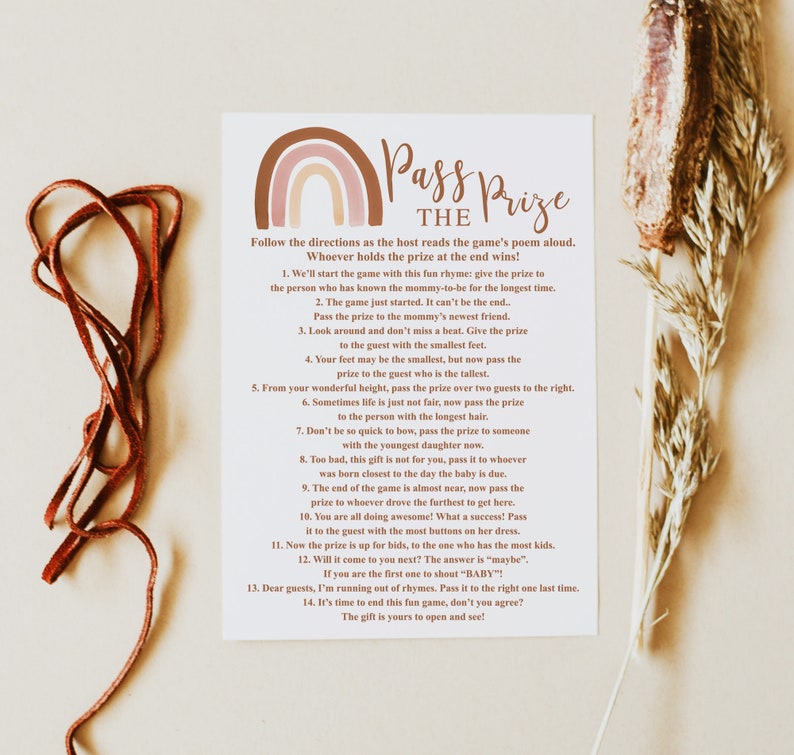 Pass
THE Prize
Follow the directions as the host reads the game's poem aloud.
Whoever holds the prize at the end wins!
1. We'll start the game with this fun rhyme: give the prize to
the person who has known the mommy-to-be for the longest time.
2. The game just started. It can't be the end..
Pass the prize to the mommy's newest friend.
3. Look around and don't miss a beat. Give the prize
to the guest with the smallest feet.
4. Your feet may be the smallest, but now pass the
prize to the guest who is the tallest.
5. From your wonderful height, pass the prize over two guests to the right.
6. Sometimes life is just not fair, now pass the prize
to the person with the longest hair.
7. Don't be so quick to bow, pass the prize to someone
with the youngest daughter now.
8. Too bad, this gift is not for you, pass it to whoever
was born closest to the day the baby is due.
9. The end of the game is almost near, now pass the
prize to whoever drove the furthest to get here.
10. You are all doing awesome! What a success! Pass
it to the guest with the most buttons on her dress.
11. Now the prize is up for bids, to the one who has the most kids.
12. Will it come to you next? The answer is “maybe”.
If you are the first one to shout “BABY”!
13. Dear guests, I'm running out of rhymes. Pass it to the right one last time.
14. It's time to end this fun game, don't you agree?
The gift is yours to open and see!